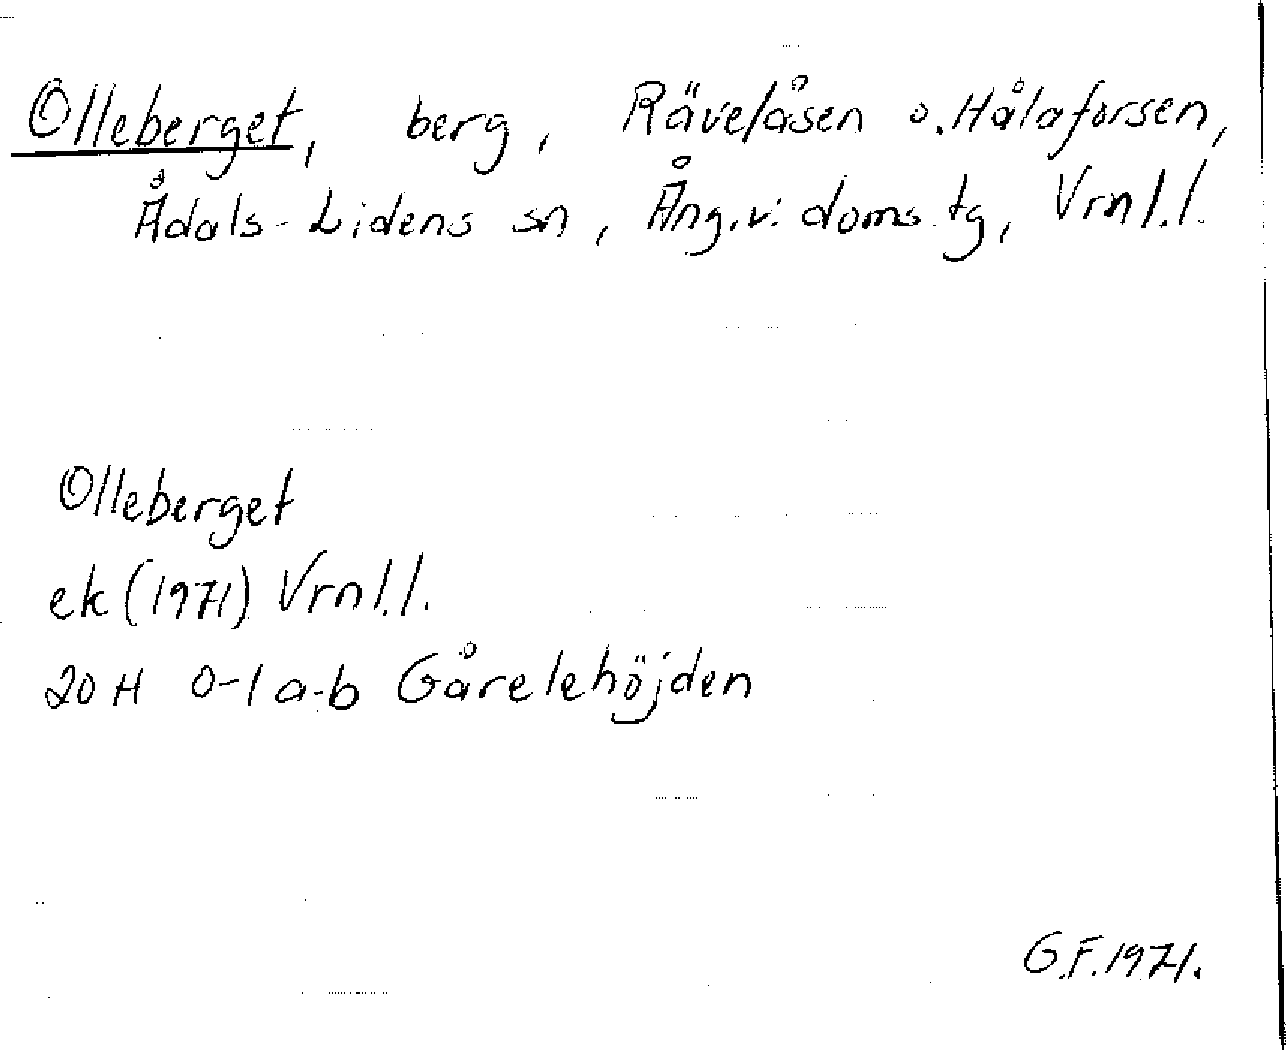 Olleberget, berg, Rävelåsen o. Hålaforsen,
Ådals-Lidens sn, Ång.v. doms. tg, Vrnl.l.
Olleberget
ek (1971) Vrnl.l.
20 H 0-1 a-b Gårelehöjden
G.F. 1971.